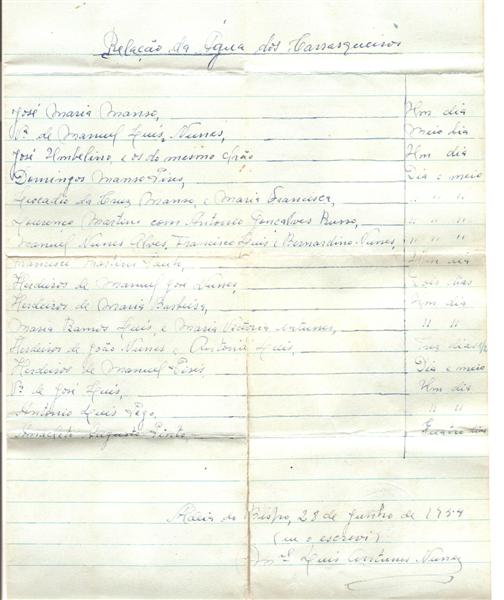 Relação da Água dos Carrasqueiros
José Maria Manso, Um dia
Vª de Manuel Luis Nunes, Meio dia
José Umbelino, e os do mesmo chão Um dia
Domingos Manso Pires, Dia e meio
Leocadia da Cruz Manso, e Maria Francisca, " " "
Lourenço Martins com Antonio Gonçalves Russo, " " "
Manuel Nunes Alves, Francisco Luis e Bernardino Nunes, " " "
Francisco Um dia
Herdeiros de Manuel José Nunes, Dois dias
Herdeiros de Maria Barbeira, Um dia
Maria Ramos Luis, e Maria Vitoria Antunes, " "
Herdeiros de João Nunes e Antonio Luis, Trez dias
Herdeiros de Manuel Pires, Dia e meio
Vª de José Luis, Um dia
António Luis Pego, " "
Anacleto Augusto Pinto, Quatro dias
Aldeia do Bispo, 28 de de 1954
(eu o escrevi)
Mel Luis Antunes Nunes